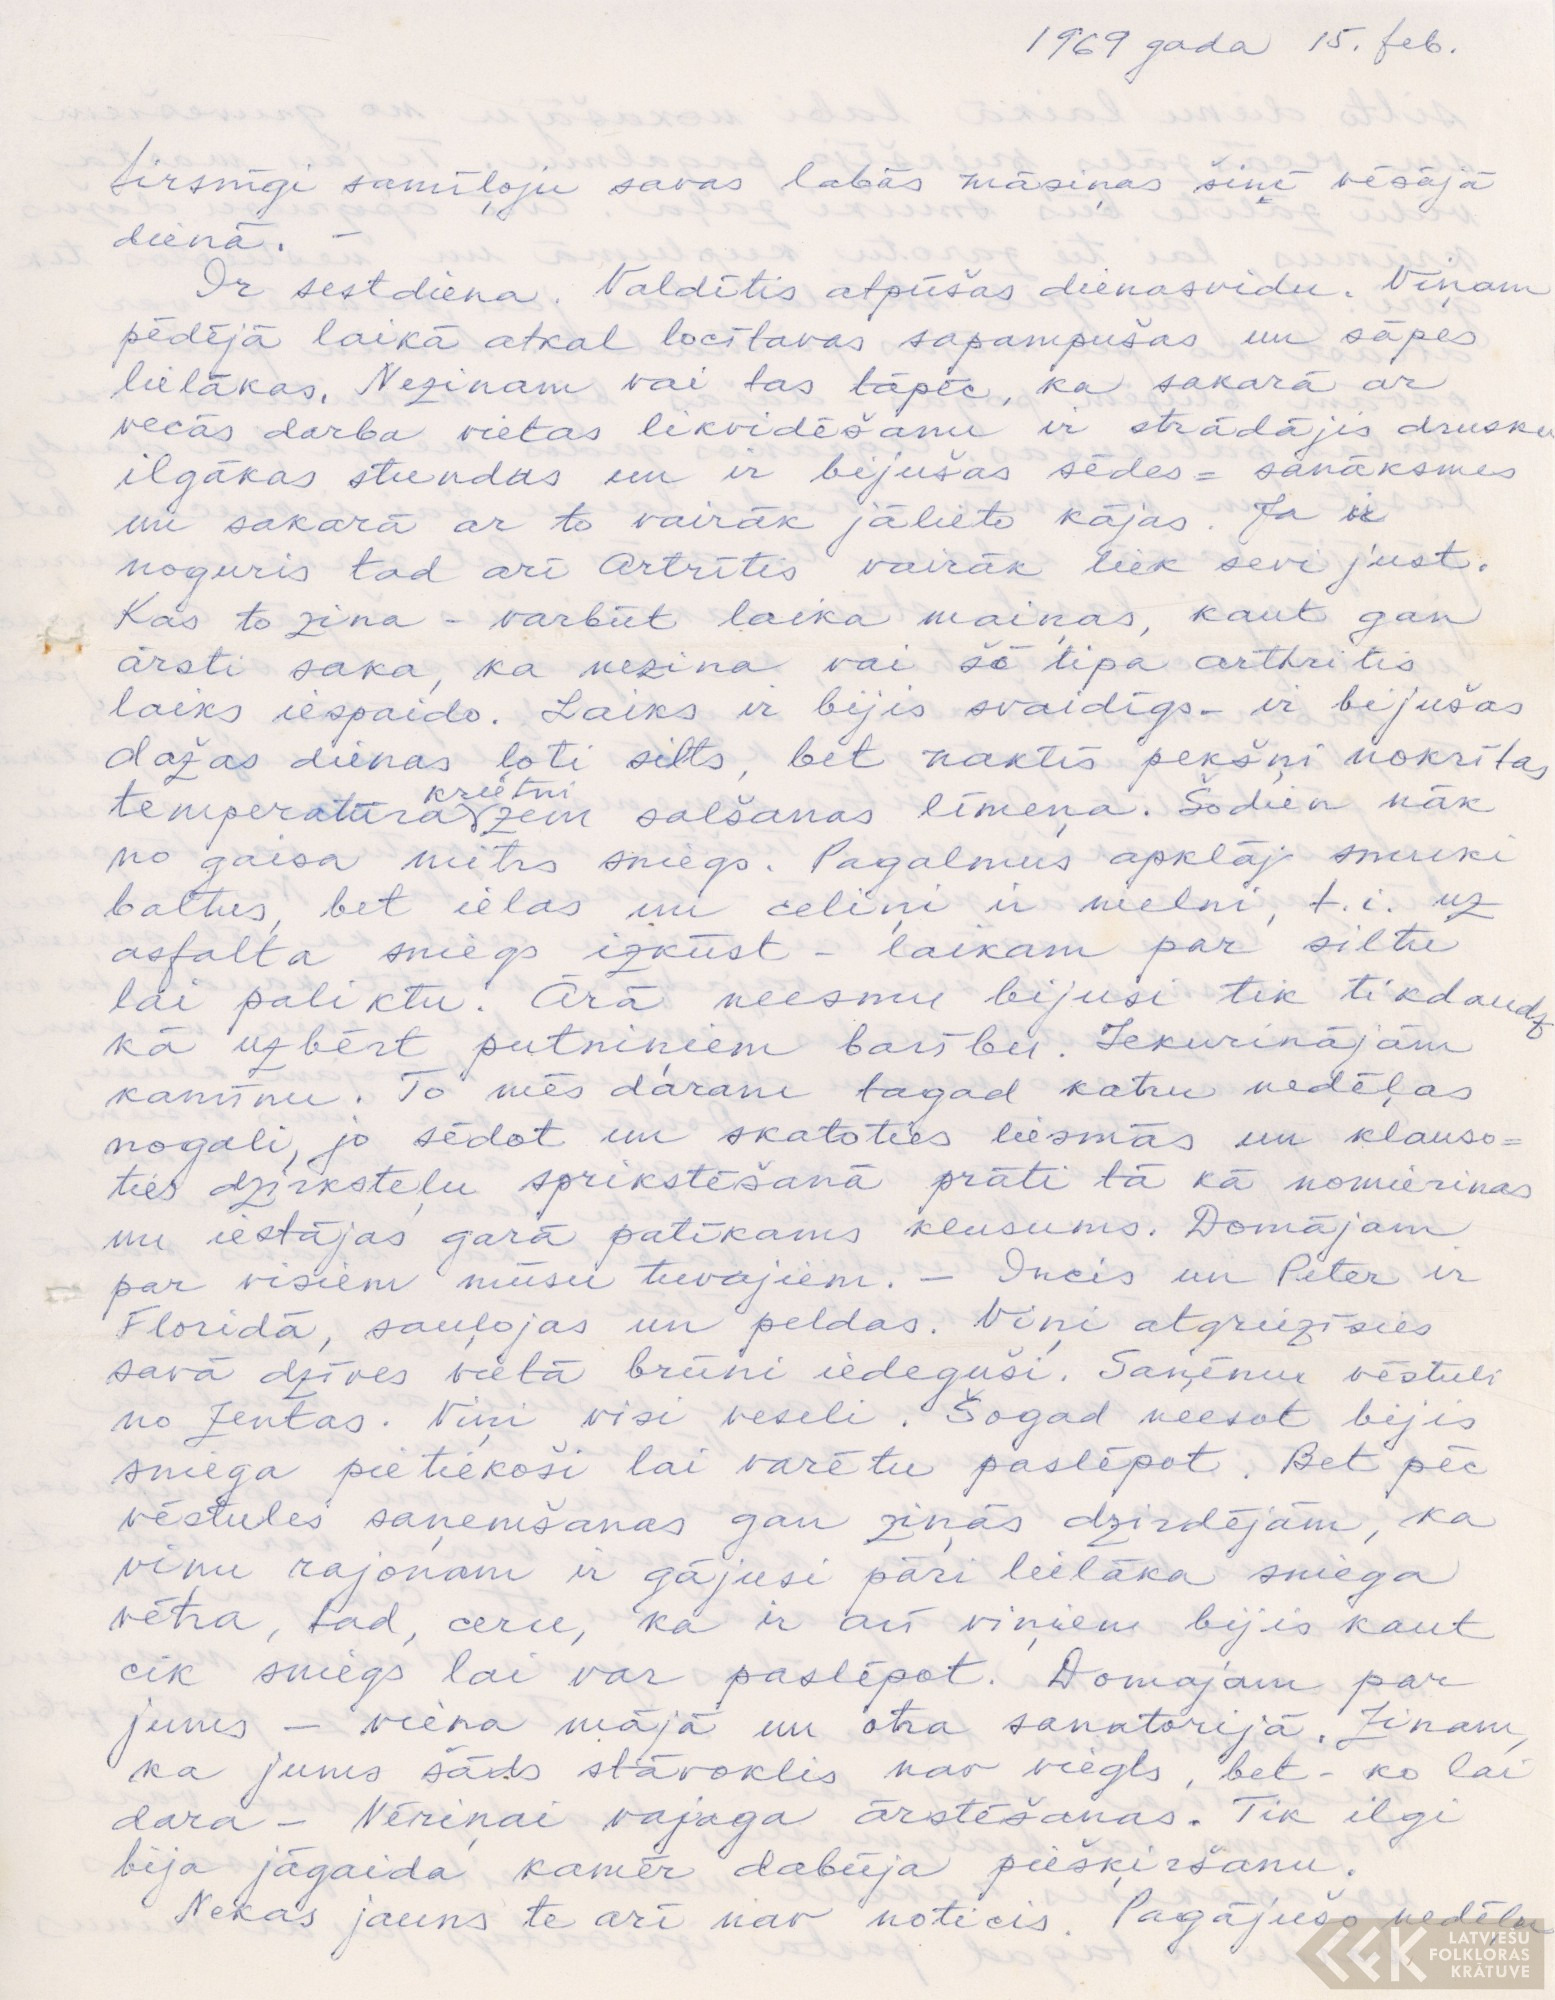 1969 gada 15. feb.
Sirsnīgi samīļoju savas labās māsiņas šinī vēsajā
dienā. –
Ir sestdiena. Valdītis atpūšas dienasvidu. Viņam
pēdējā laikā atkal locītavas sapampušas un sāpes
lielākas. Nezinam vai tas tāpēc, ka sakarā ar
vecās darba vietas likvidēšanu ir strādājis drusku
ilgākas stundas un ir bijušas sēdes = sanāksmes
un sakarā ar to vairāk jālieto kājas. Ja ir
noguris tad arī Artrītis vairāk liek sevi just.
Kas to zina – varbūt laika maiņas, kaut gan
ārsti saka, ka nezina vai šo tipa arthritis
laiks iespaido. Laiks ir bijis svaidīgs – ir bijušas
dažas dienas ļoti silts, bet naktīs pekšņi nokrītas
temperatūra krietni zem salšanas līmeņa. Šodien nāk
no gaisa mitrs sniegs. Pagalmus apklāj smuki
baltus, bet ielas un celiņi ir melni, t.i. uz
asfalta sniegs izkūst – laikam par siltu
lai paliktu. Ārā neesmu bijusi tik tikdaudz
kā uzbērt putniņiem barību. Iekurinājām
kamīnu. To mēs daram tagad katru nedēļas
nogali, jo sēdot un skatoties liesmās un klauso=
ties dzirksteļu sprikstēšanā prāti tā kā nomierinas
un iestājas garā patīkams klusums. Domājam
par visiem mūsu tuvajiem. – Incis un Peter ir
Floridā, sauļojas un peldas. Viņi atgriezīsies
savā dzīves vietā brūni iedeguši. Saņēmu vēstuli
no Zentas. Viņi visi veseli. Šogad neesot bijis
sniega pietiekoši lai varētu paslēpot. Bet pēc
vēstules saņemšanas gan ziņās dzirdējām, ka
viņu rajonam ir gājusi pāri lielāka sniega
vētra, tad, ceru, ka ir arī viņiem bijis kaut
cik sniegs lai var paslēpot. Domajam par
jums – viena mājā un otra sanatorijā. Zinam,
ka jums šāds stāvoklis nav viegls, bet – ko lai
dara – Vēriņai vajaga ārstēšanas. Tik ilgi
bija jāgaida kamēr dabūja piešķiršanu.
Nekas jauns te arī nav noticis. Pagājušo nedēļu
LATVIEŠU
FOLKLORAS
KRĀTUVE